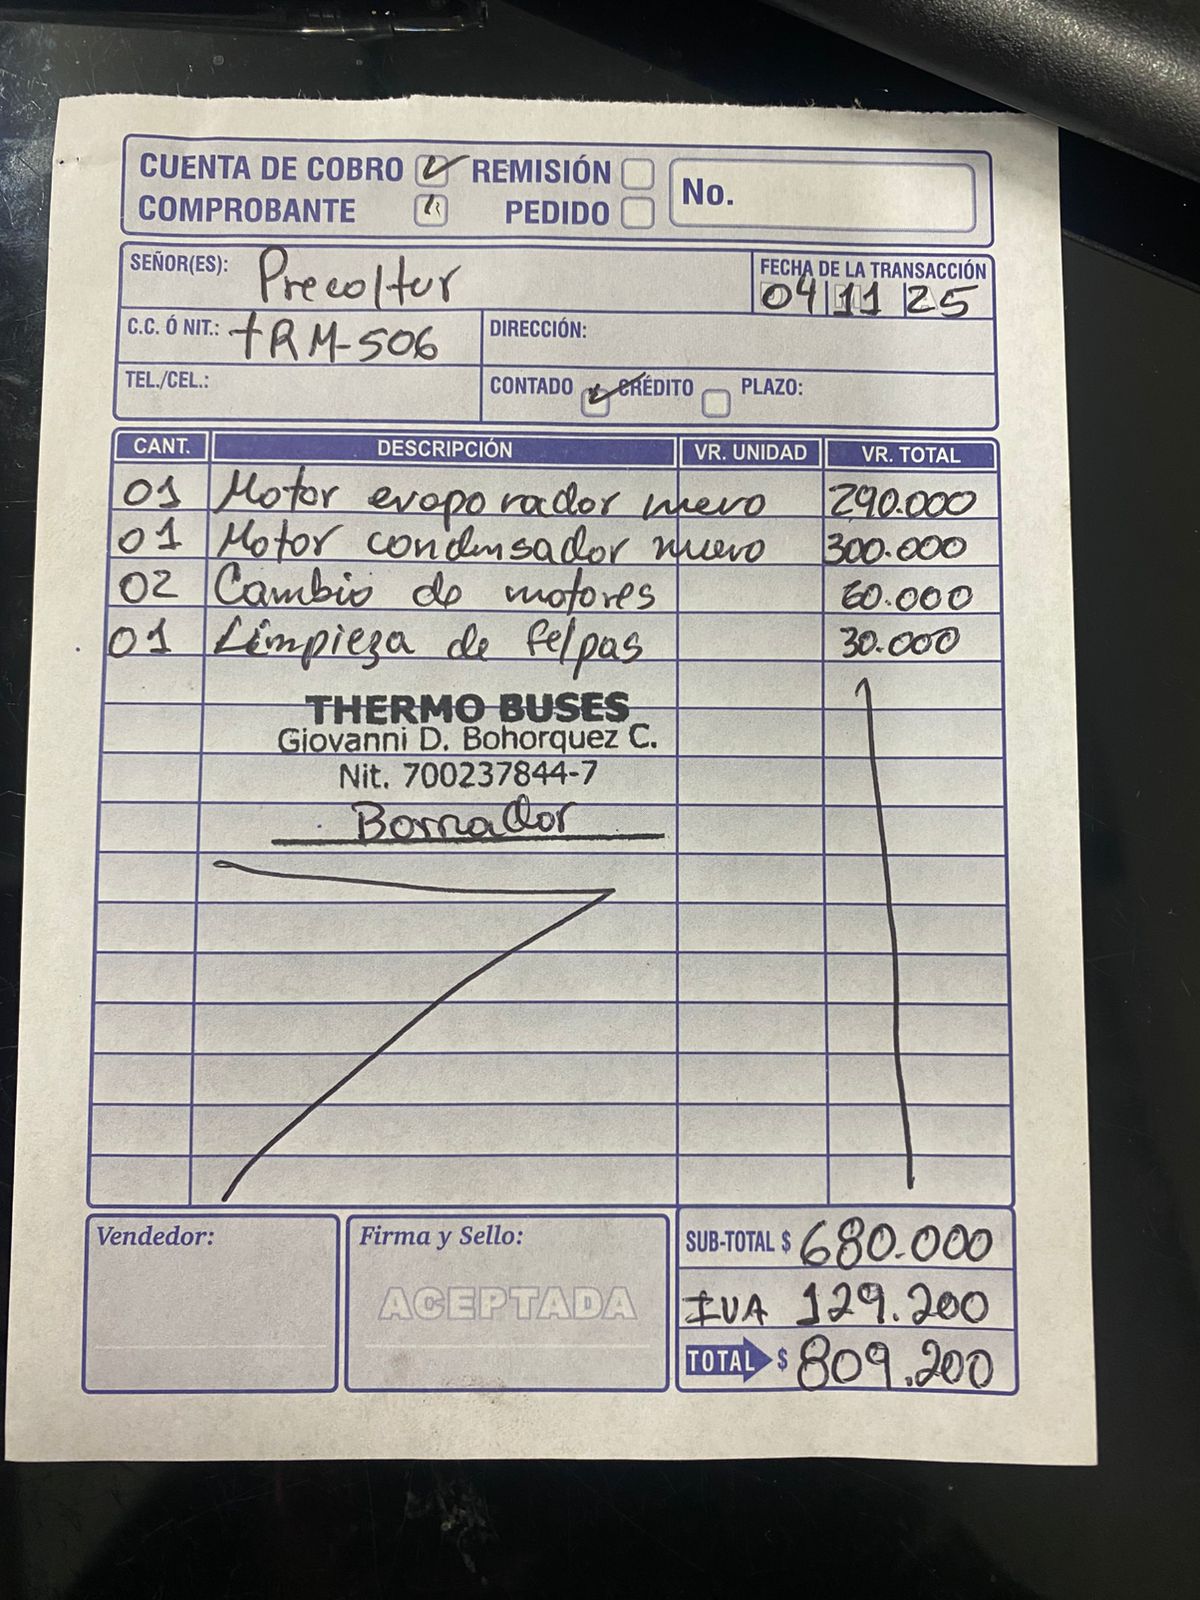 CUENTA DE COBRO REMISIÓN
COMPROBANTE PEDIDO
No.
SEÑOR(ES): Precoltur
FECHA DE LA TRANSACCIÓN
04 11 25
C.C. Ó NIT.: TRM-506 DIRECCIÓN:
TEL./CEL.: CONTADO CRÉDITO PLAZO:
CANT. DESCRIPCIÓN VR. UNIDAD VR. TOTAL
01 Motor evaporador nuevo 290.000
01 Motor condensador nuevo 300.000
02 Cambio de motores 60.000
01 Limpieza de felpas 30.000
THERMO BUSES
Giovanni D. Bohorquez C.
Nit. 700237844-7
Borrador
Vendedor: Firma y Sello:
ACEPTADA
SUB-TOTAL $ 680.000
IVA 129.200
TOTAL $ 809.200